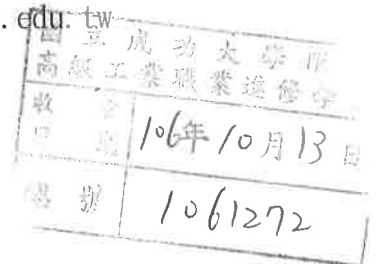 . edu. tw
國立成功大學附
高級工業職業進修學
收
106年10月13日
號
1061272